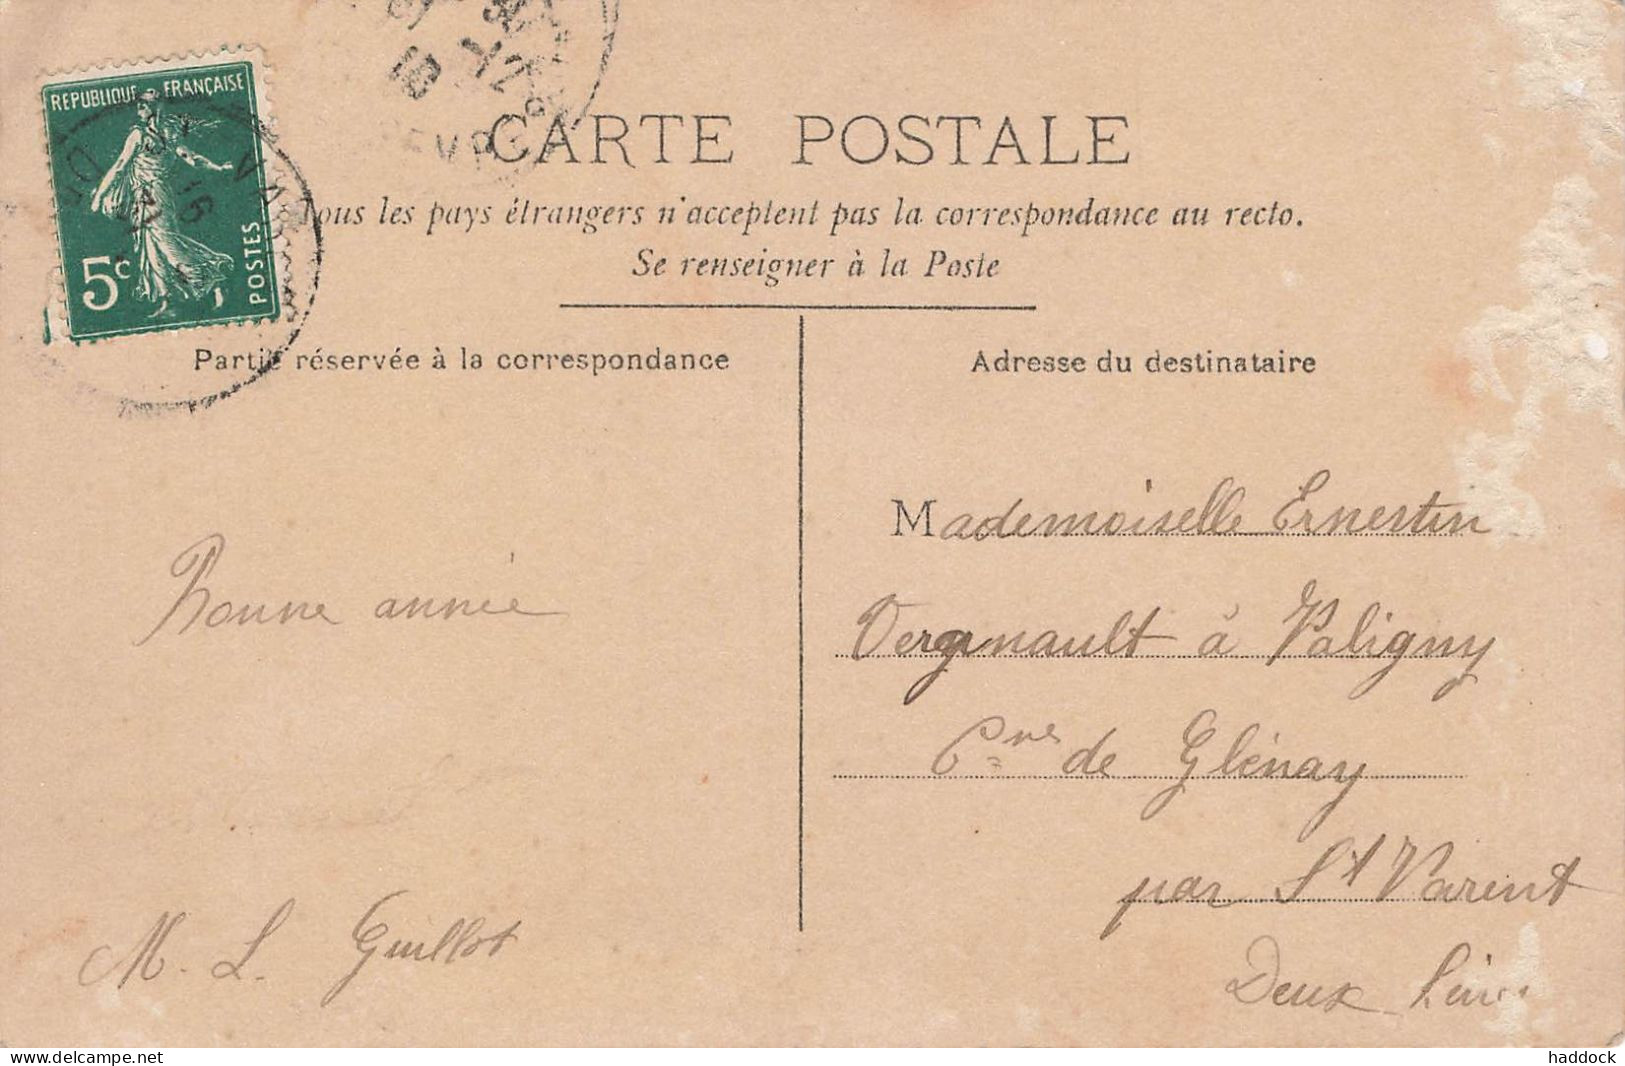 REPUBLIQUE FRANÇAISE
5c
POSTES
CARTE POSTALE
Tous les pays étrangers n'acceptent pas la correspondance au recto.
Se renseigner à la Poste
Partie réservée à la correspondance
Bonne année
M. L. Guillot
Adresse du destinataire
Mademoiselle Ernestin
Vergnault à Valigny
Cne de Glénay
par St Varent
Deux
delcampe.net
haddock